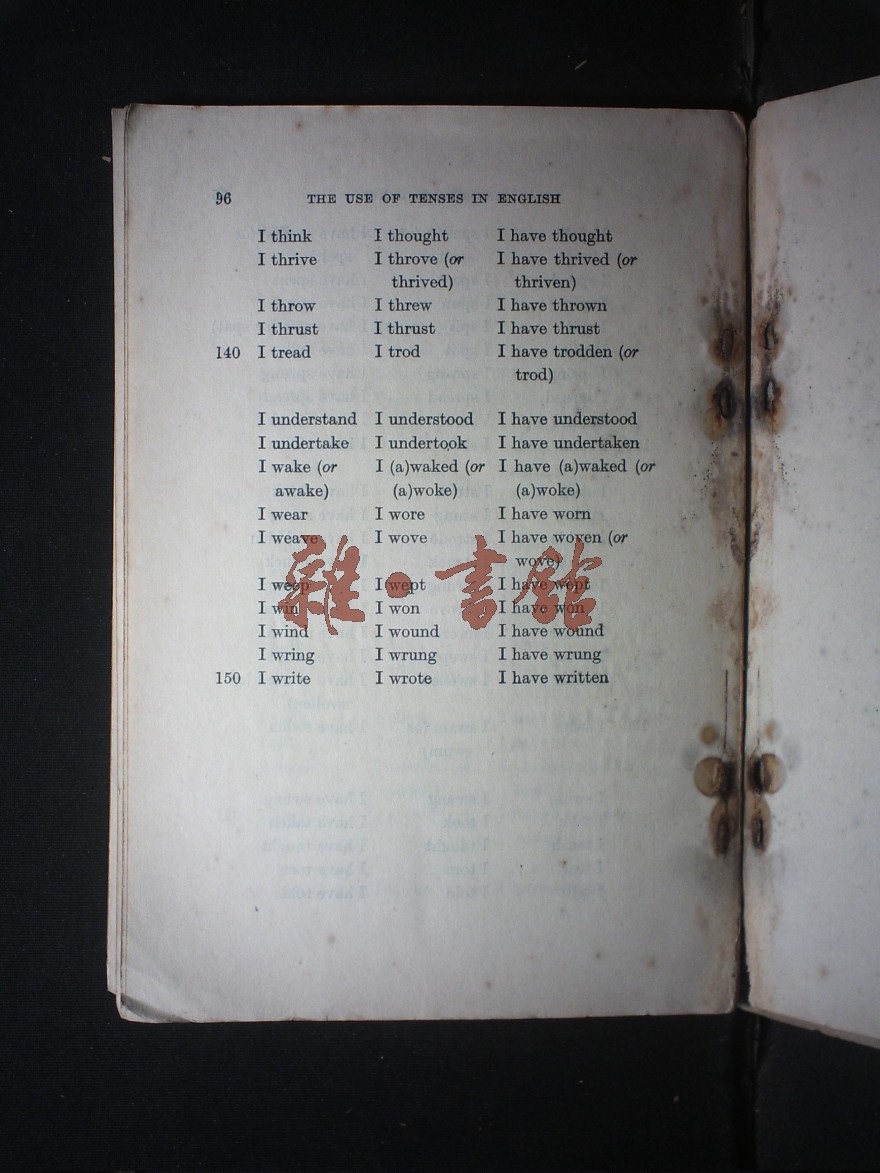 96 THE USE OF TENSES IN ENGLISH
I think I thought I have thought
I thrive I throve (or I have thrived (or
thrived) thriven)
I throw I threw I have thrown
I thrust I thrust I have thrust
140 I tread I trod I have trodden (or
trod)
I understand I understood I have understood
I undertake I undertook I have undertaken
I wake (or I (a)waked (or I have (a)waked (or
awake) (a)woke) (a)woke)
I wear I wore I have worn
I weave I wove I have woven (or
wove)
I weep I wept I have wept
I win I won I have won
I wind I wound I have wound
I wring I wrung I have wrung
150 I write I wrote I have written
雜·書館